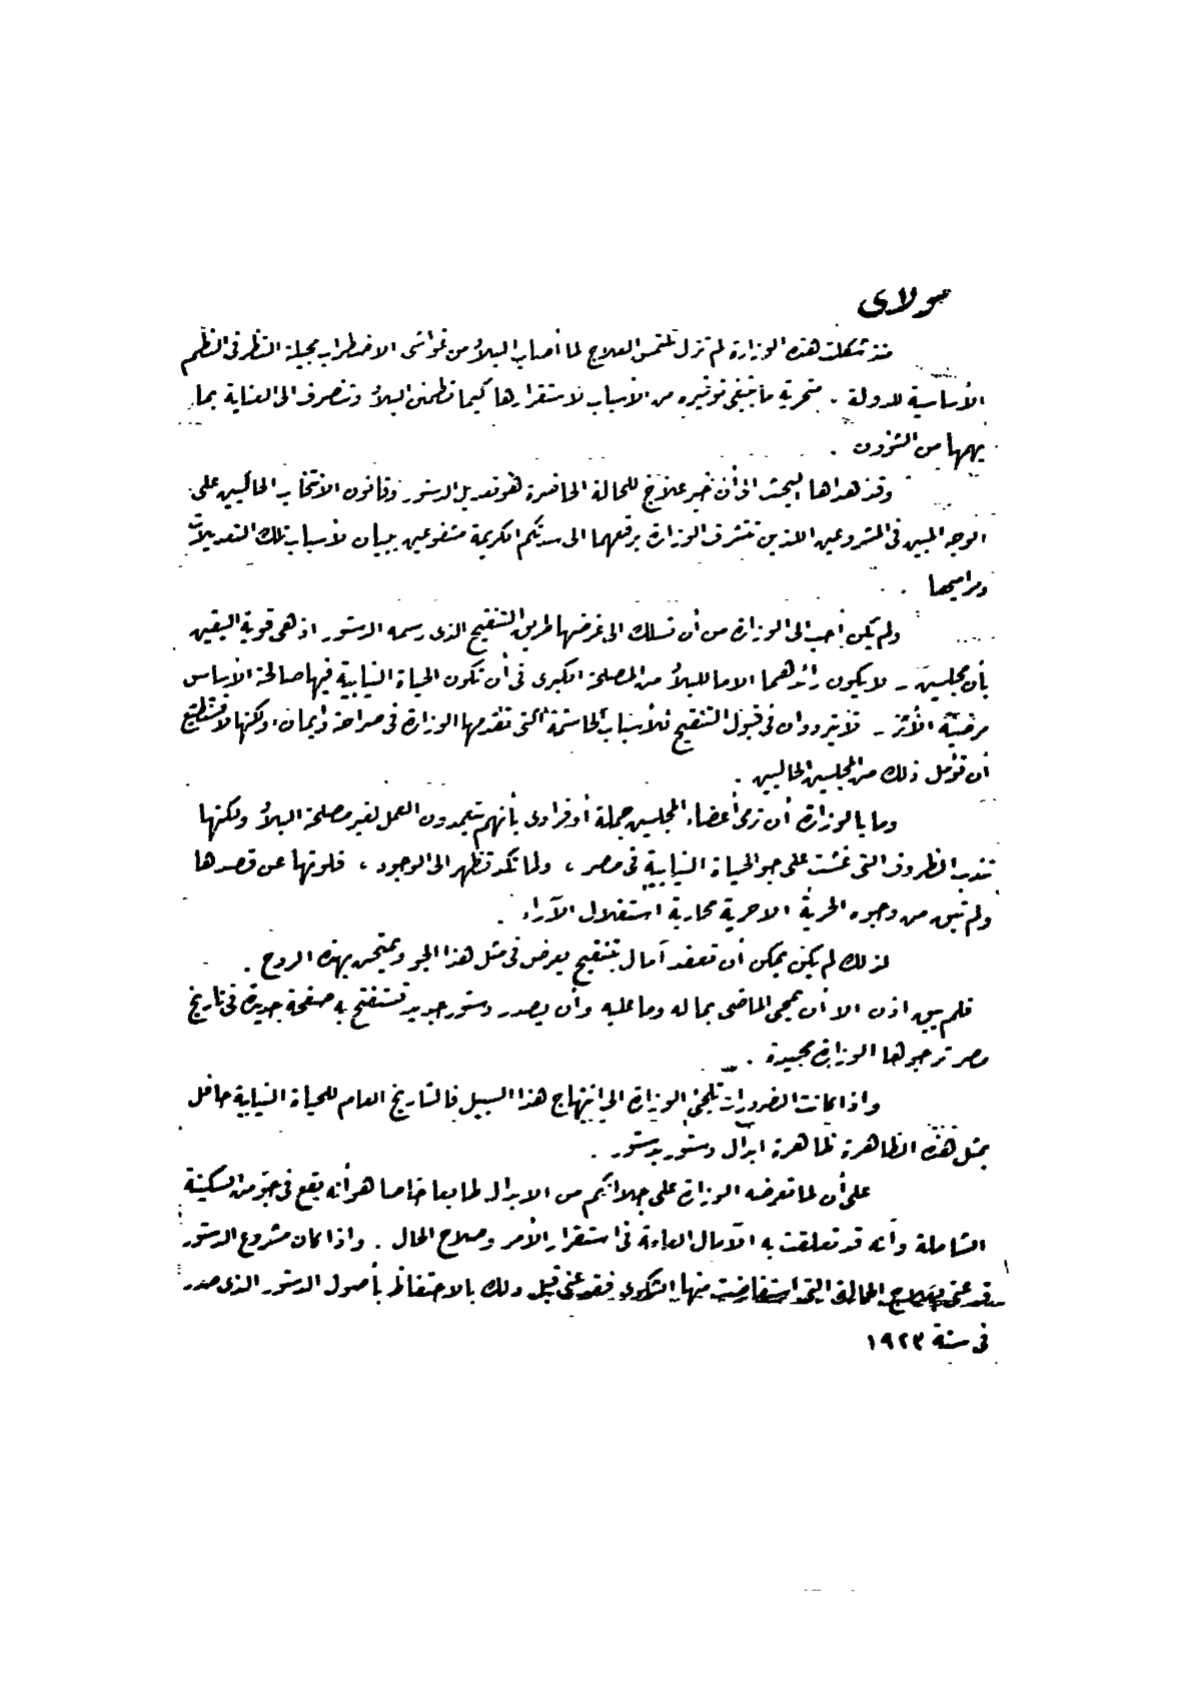 مولاى
منذ شكلت هذه الوزارة لم تزل تلتمس العلاج لما أصاب البلاد من غواشى الاضطراب مجيلة النظر فى النظم
الأساسية للدولة . متحرية ما ينبغى توفيره من الأسباب لاستقرارها كيما تطمئن البلاد وتنصرف الى العناية بما
يهمها من الشؤون .
وقد هداها البحث الى أن خير علاج للحالة الحاضرة هو تعديل الدستور وقانون الانتخاب الحاليين على
الوجه المبين فى المشروعين اللذين تتشرف الوزارة برفعهما الى سدتكم الكريمة مشفوعين ببيان لأسباب تلك التعديلات
ومراميها .
ولم يكن أحب الى الوزارة من أن تسلك الى غرضها طريق التنقيح الذى رسمه الدستور اذ هى قوية اليقين
بأن مجلسين - لا يكون رائدهما الا ما للبلاد من المصلحة الكبرى فى أن تكون الحياة النيابية فيها صالحة الأساس
مرضية الأثر - لا يترددان فى قبول التنقيح للأسباب الحاسمة التى تقدمها الوزارة فى صراحة وايمان، ولكنها لا تستطيع
أن تؤمل ذلك من المجلسين الحاليين .
وما بالوزارة أن ترمى أعضاء المجلسين جملة أو فرادى بأنهم يتعمدون العمل لغير مصلحة البلاد ولكنها
تندب الظروف التى غشت على جو الحياة النيابية فى مصر ، ولما تكد تظهر الى الوجود ، فلوتها عن قصدها
ولم تبق من وجوه الحرية الا حرية محاربة استقلال الآراء .
لذلك لم يكن يمكن أن تعقد آمال بتنقيح يعرض فى مثل هذا الجو ويمتحن بهذه الروح .
فلم يبق اذن الا أن يمحى الماضى بما له وما عليه وأن يصدر دستور جديد تستفتح به صفحة جديدة فى تاريخ
مصر ترجوها الوزارة مجيدة .
واذا كانت الضرورات تلجئ الوزارة الى انتهاج هذا السبيل فالتاريخ العام للحياة النيابية حافل
بمثل هذه الظاهرة ظاهرة ابدال دستور بدستور .
على أن لما تعرضه الوزارة على جلالتكم من الابدال طابعا خاصا هو أنه يقع فى جو من السكينة
الشاملة وأنه قد تعلقت به الآمال العامة فى استقرار الأمر وصلاح الحال . واذا كان مشروع الدستور
قد عنى بعلاج الحالة التى استفاضت منها الشكوى فقد عنى قبل ذلك بالاحتفاظ بأصول الدستور الذى صدر
فى سنة ١٩٢٣